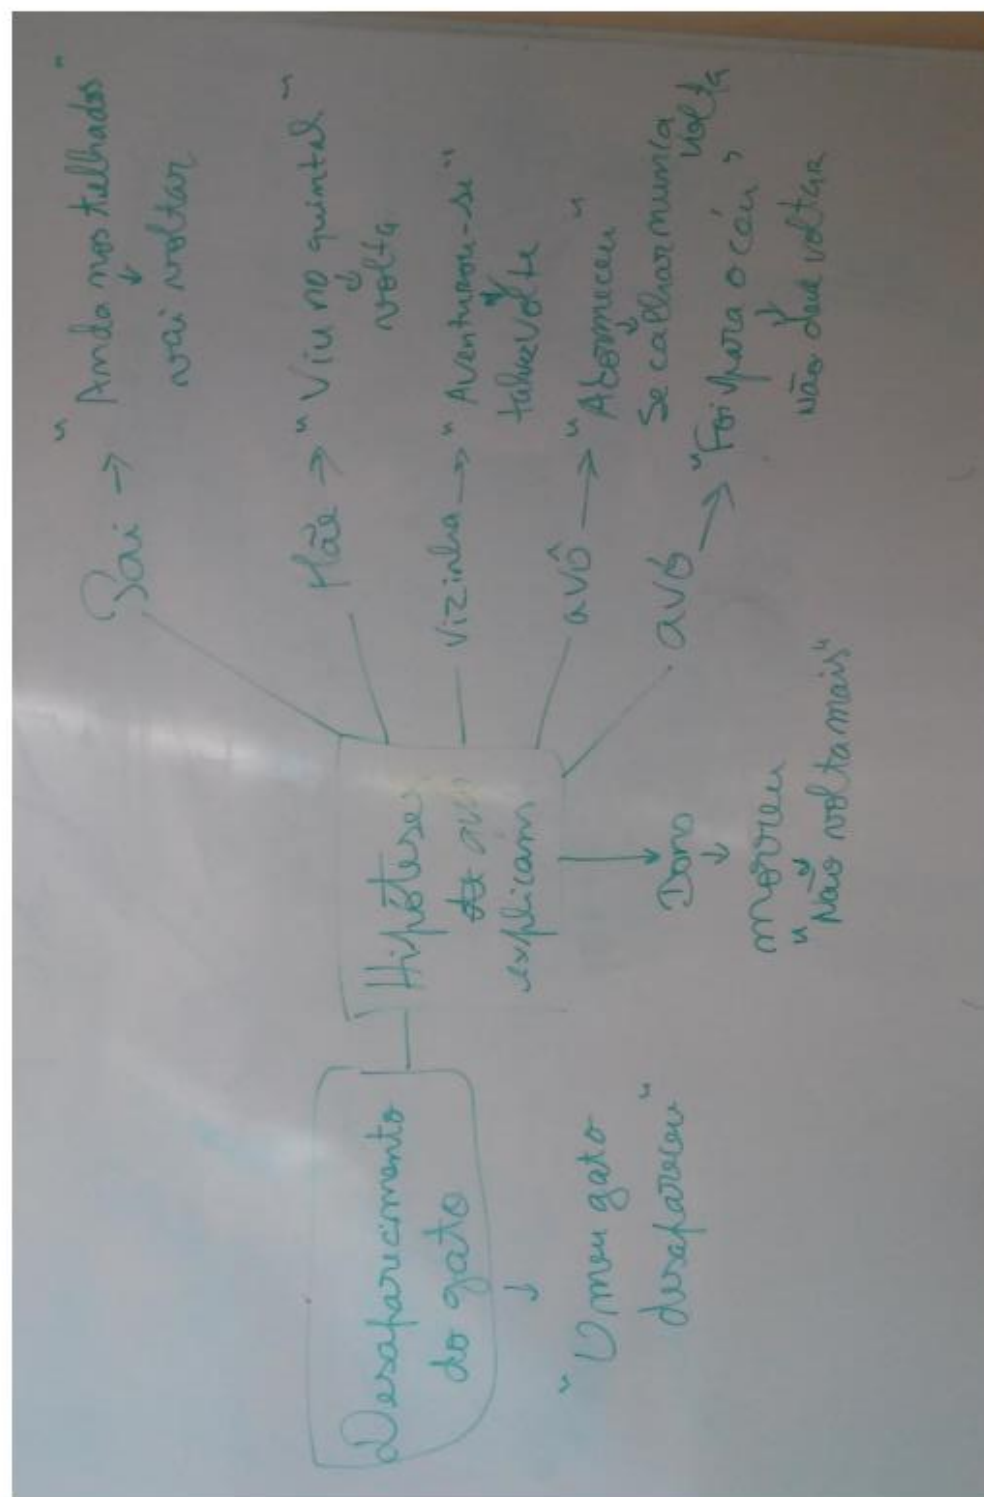 Desaparecimento
do gato
↓
"O meu gato
desapareceu"
Hipóteses
que
explicam
Pai → "Anda nos telhados"
↓
vai voltar
Mãe → "Viu no quintal"
↓
volta
Vizinha → "Aventurou-se"
↓
talvez volte
avô → "Adormeceu"
↓
Se calhar nunca
volta
avó → "Foi para o céu"
↓
Não deve voltar
Dono
↓
morreu
↓
"Não volta mais"